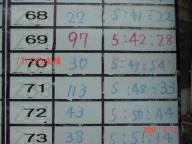 68 22 5:41:22
69 97 5:42.28
70 30 5:43:54
71 113 5:48:33
72 43 5:50:44
73 38